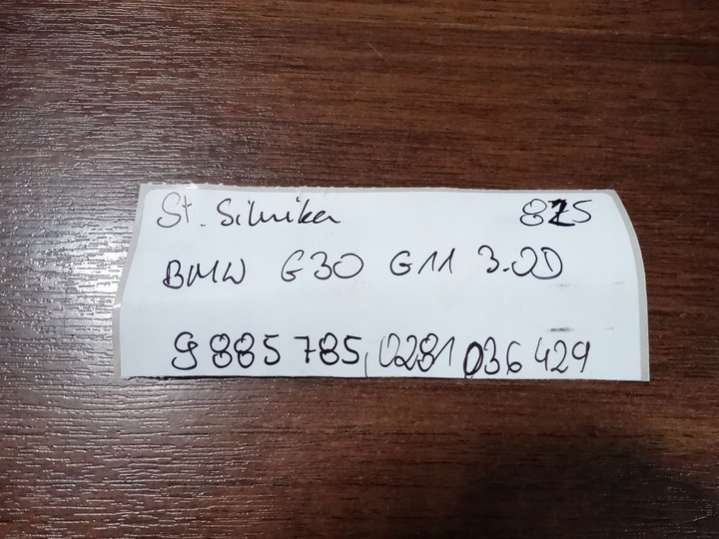 St. Silnika 815
BMW G30 G11 3.0D
9885785, 0281 036 429